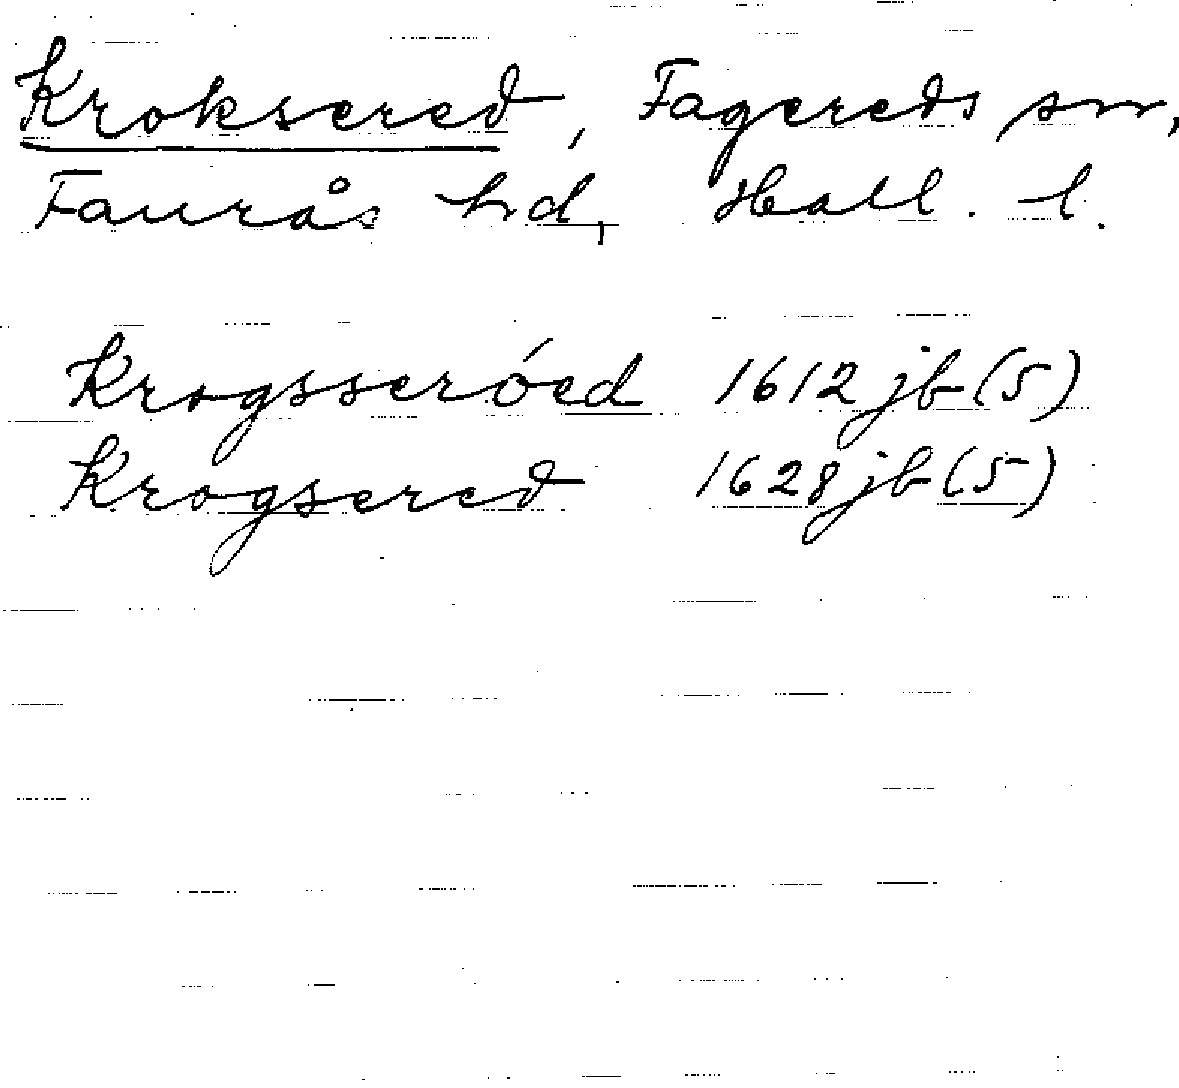 Kroksered, Fagereds sn,
Faurås hd, Hall. l.
Krogsseróed 1612 jb (5)
Krogsered 1628 jb (5)